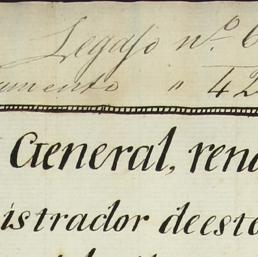 Legajo nº 6
amento " 42
General, rend
istrador deesta